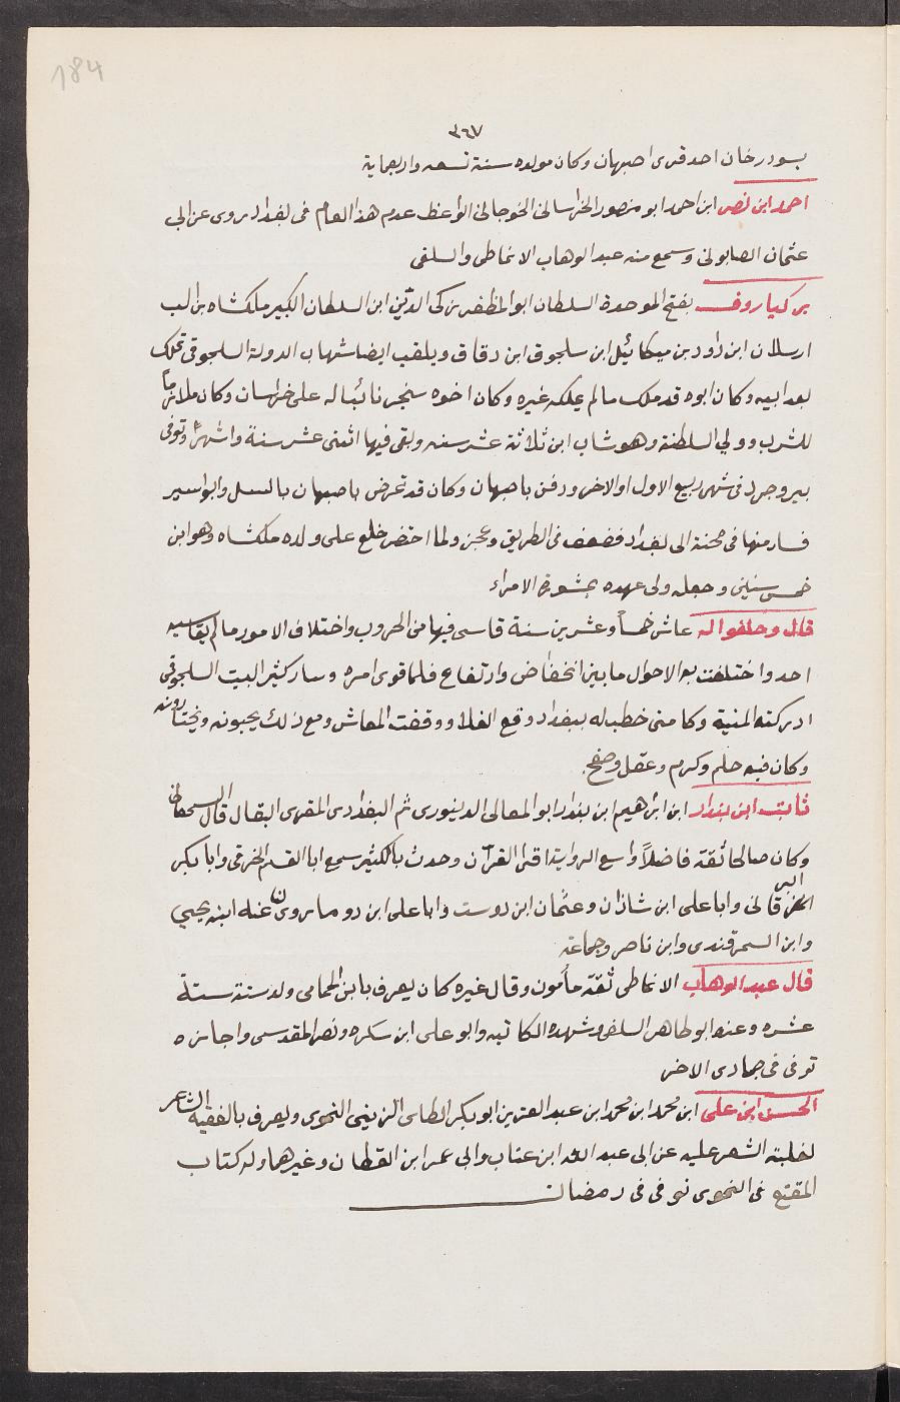 184
٣٦٧
بسودرخان احد قرى اصبهان وكان مولده سنة تسعه واربعماية
احمد ابن نصر ابن احمد ابو منصور الخراسانى الخوجانى الواعظ عدم هذا العام فى بغداد روى عن ابى
عثمان الصابونى وسمع منه عبد الوهاب الانماطى والسلفى
بركياروف بفتح الموحدة السلطان ابو المظفر ركى الدين ابن السلطان الكبير ملكشاه بن الب
ارسلان ابن داود بن ميكائيل ابن سلجوق ابن دقاق ويلقب ايضا شهاب الدولة السلجوقى تملك
بعد ابيه وكان ابوه قد ملك مالم يملكه غيره وكان اخوه سنجر نائبًا له على خراسان وكان ملازمًا
للشرب وولي السلطنة وهو شاب ابن ثلاثة عشر سنه وبقى فيها اثنى عشر سنة واشهرًا وتوفى
ببروجرد فى شهر ربيع الاول او الاخر ودفن باصبهان وكان قد تمرض باصبهان بالسل وابواسير
فسار منها فى محنة الى بغداد فضعف فى الطريق وعجز ولما احتضر خلع على ولده ملكشاه وهو ابن
خمس سنين وجعله ولى عهده بمشورة الامراء
قال وحلفوا له عاش خمساً وعشرين سنة قاسى فيها من الحروب واختلاف الامور مالم يقاسيه
احد واختلفت به الاحوال ما بين انخفاض وارتفاع فلما قوى امره وسار كثير البيت السلجوقى
ادركته المنية وكا متى خطب له ببغداد وقع الغلا ووقفت المعاش ومع ذلك يحبونه ويختارونه
وكان فيه حلم وكرم وعقل وصفح
ثابت ابن بندار ابن ابرهيم ابن بندار ابو المعالى الدينورى ثم البغدادى المقرى البقال قال السمعانى
وكان صالحا ثقة فاضلاً واسع الرواية اقرا القرآن وحدث بالكثير سمع ابا القسم الخرقى وابا بكر
البرقانى وابا على ابن شاذان وعثمان ابن دوست وابا على ابن دوما روى عنه ابنه يحيي
وابن السمرقندى وابن ناصر وجماعة
قال عبد الوهاب الانماطى ثقة مأمون وقال غيره كان يعرف بابن الحمامى ولد سنة ستة
عشره وعنه ابو طاهر السلفى وشهده الكاتبه وابو على ابن سكره ونصر المقدسى واجازه
توفى فى جمادى الاخر
الحسن ابن على ابن محمد ابن محمد ابن عبد العزيز ابو بكر الطاى الزينى النحوى ويعرف بالفقيه الشاعر
لغلبة الشعر عليه عن ابى عبد الله ابن عتاب وابى عمر ابن القطان وغيرهما وله كتاب
المقنع فى النحوى توفى فى رمضان